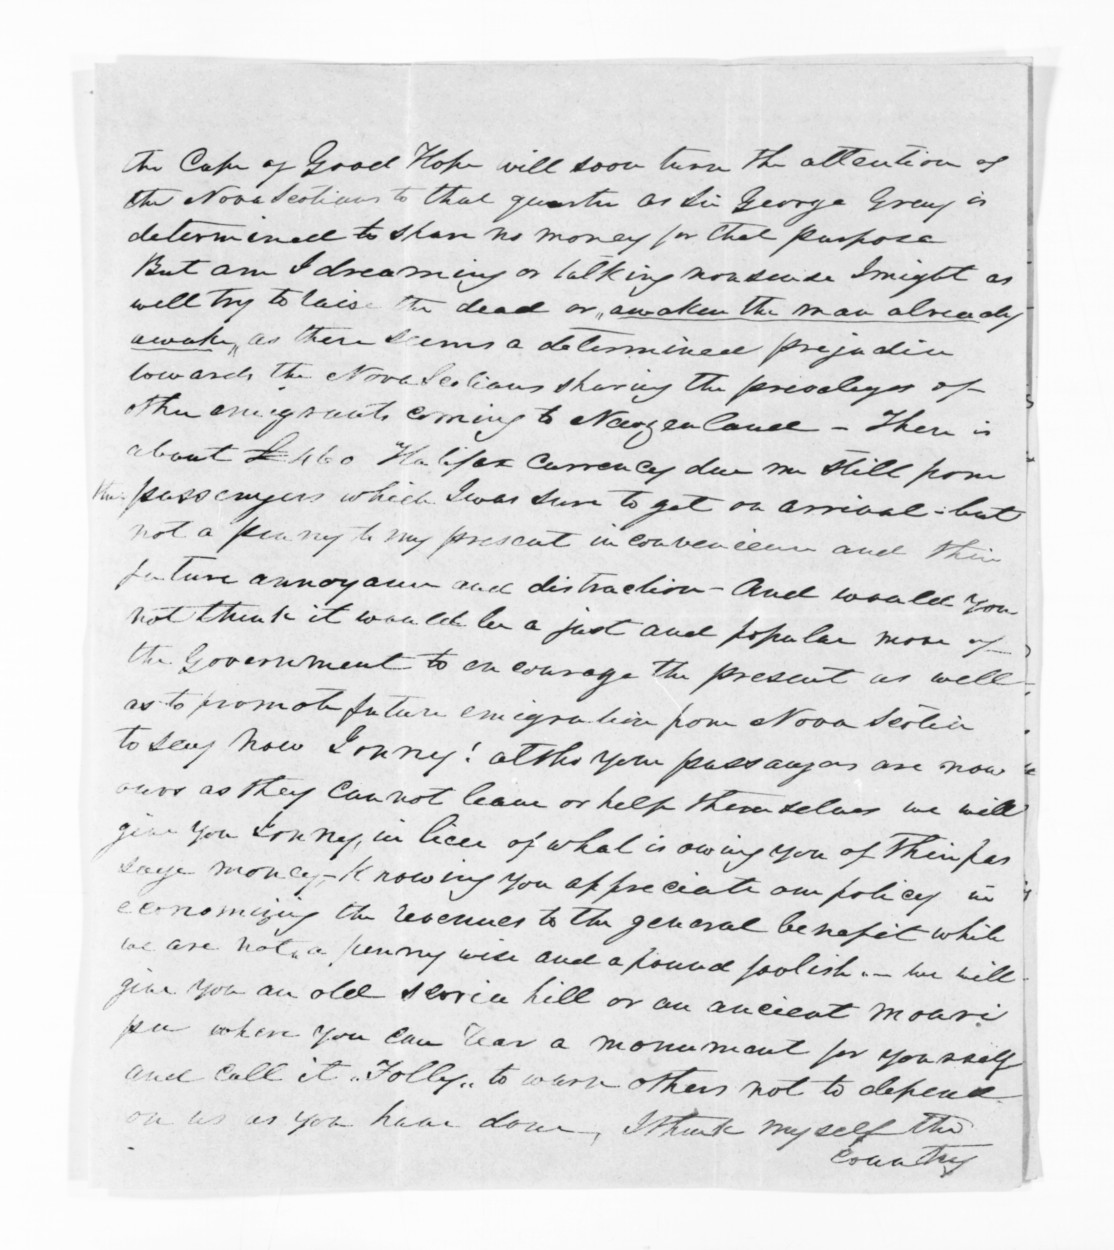 the Cape of Good Hope will soon turn the attention of
the Nova Scotians to that quarter as Sir George Grey is
determined to spare no money for that purpose
But am I dreaming or talking nonsense I might as
well try to raise the dead or „awaken the man already
awake„ as there seems a determined prejudice
towards the Nova Scotians sharing the priveleges of
other emigrants coming to Newzealand – There is
about £460 Halifax currency due me still from
the passengers which I was sure to get on arrival – but
not a penny to my present inconvenience and their
future annoyance and distraction – And would you
not think it would be a just and popular move of
the Government to encourage the present as well
as to promote future emigration from Nova Scotia
to say now Sonny! altho your passangers are now
ours as they can not leave or help themselves we will
give you Sonny, in lieu of what is owing you of their pas
sage money, – Knowing you appreciate our policy in
economizing the revenues to the general benefit while
we are not „a penny wise and a pound foolish„ – we will
give you an old scoria hill or an ancient Moari
pa where you can rear a monument for yourself
and call it „Folly„ to warn others not to depend
on us as you have done, I think myself the
country